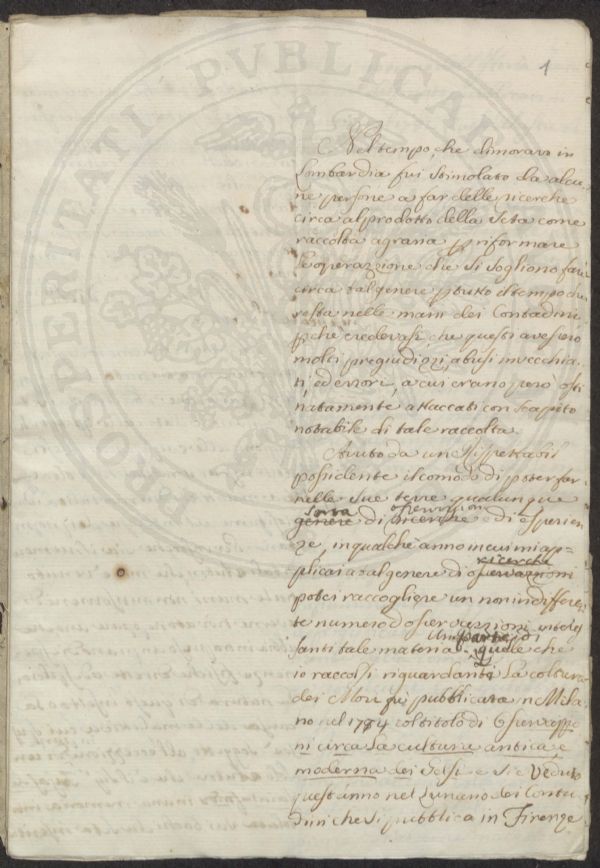 1
Nel tempo, che dimoravo in
Lombardia fui stimolato da alcu=
ne persone a far delle ricerche
circa al prodotto della Seta come
raccolta agraria p riformare
le operazione che si sogliono fare
circa tal genere p tutto il tempo che
resta nelle mani dei Contadini
p chè credevasi che questi avessero
molti pregiudizi, abusi invecchia=
ti ed errori, a cui erano però osti
natamente attaccati con scapito
notabile di tale raccolta.
Avuto da un Rispettabil
possidente il comodo di poter far
nelle sue terre qualunque
sorta osservazioni
genere di ricerche e di esperien
ze, in qualche anno in cui mi ap=
ricerche
plicai a tal genere di osservazioni
potei raccogliere un non indifferen
te numero d osservazioni interes
Una parte di
santi tale materia quelle che
io raccolsi riguardanti la coltura
dei Mori fù pubblicata in Mila
no nel 1784 col titolo di Osservazio
ni circa la cultura antica e
moderna dei Gelsi e si è veduto
quest'anno nel Lunario dei Conta
dini che si pubblica in Firenze
PROSPERITATI PVBLICAE